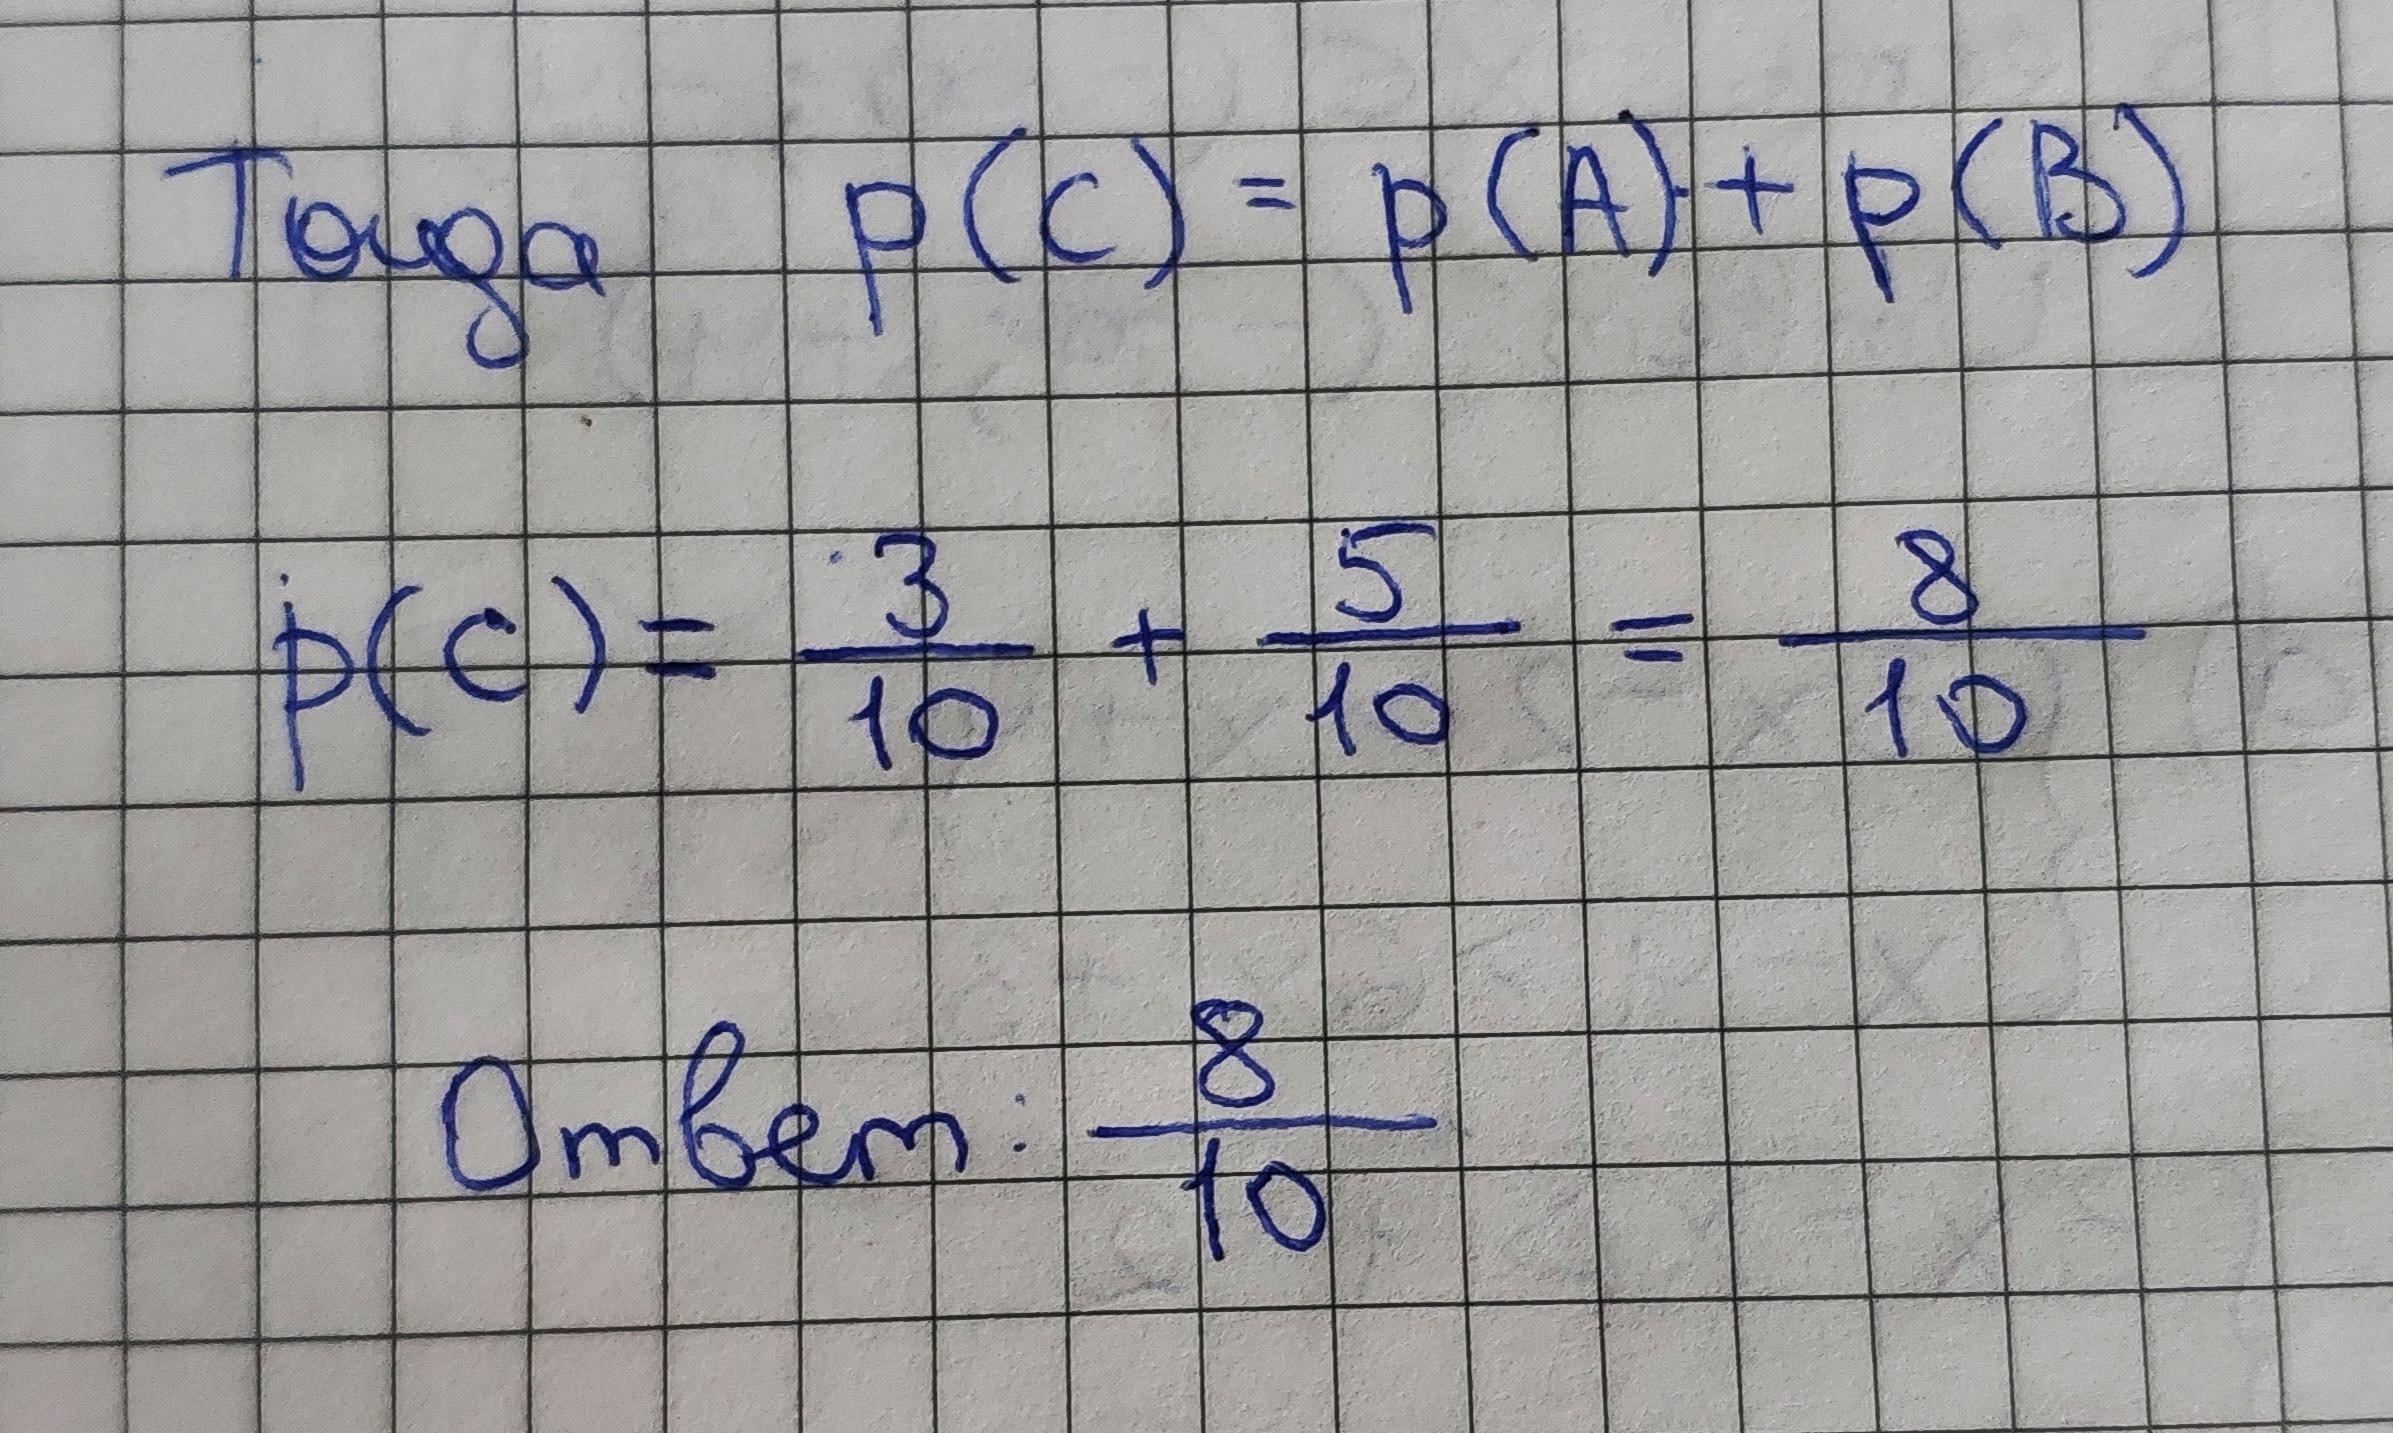 Тогда p(C) = p(A) + p(B)
p(C) = 3/10 + 5/10 = 8/10
Ответ: 8/10